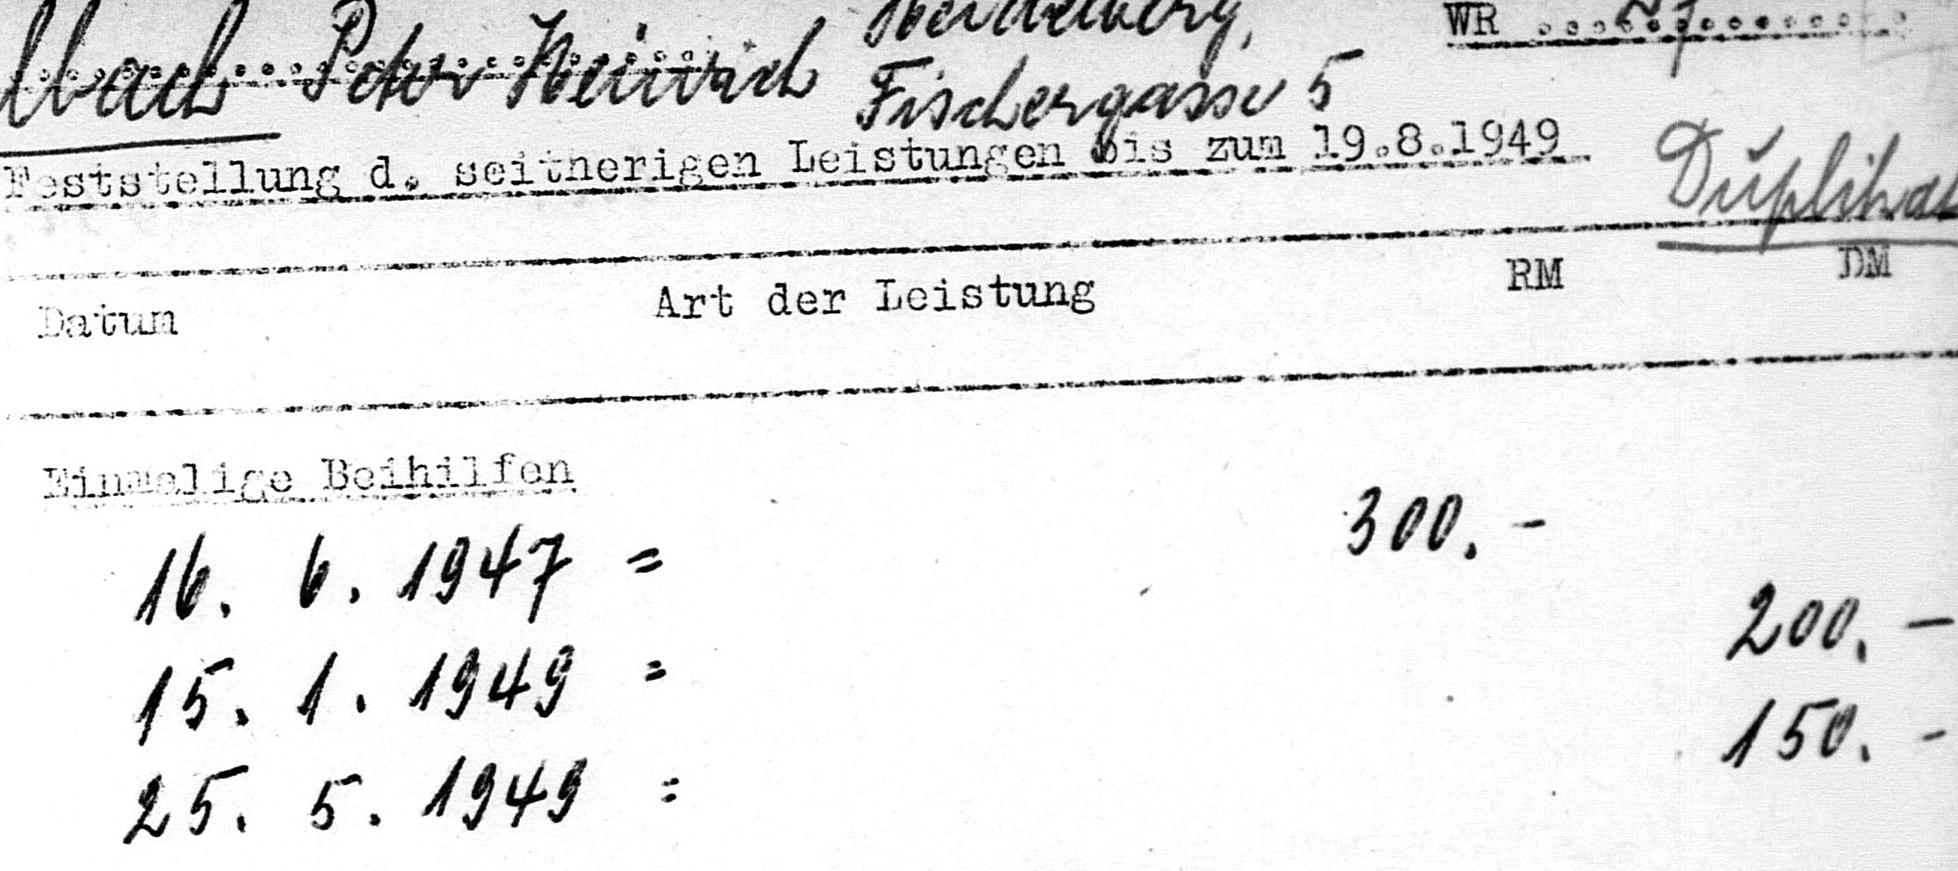 Peter Heinrich Heidelberg,
Fischergasse 5
WR
Feststellung d. seitherigen Leistungen bis zum 19.8.1949
Duplikat
Datum Art der Leistung RM DM
Einmalige Beihilfen
16. 6. 1947 = 300.-
15. 1. 1949 = 200.-
25. 5. 1949 = 150.-